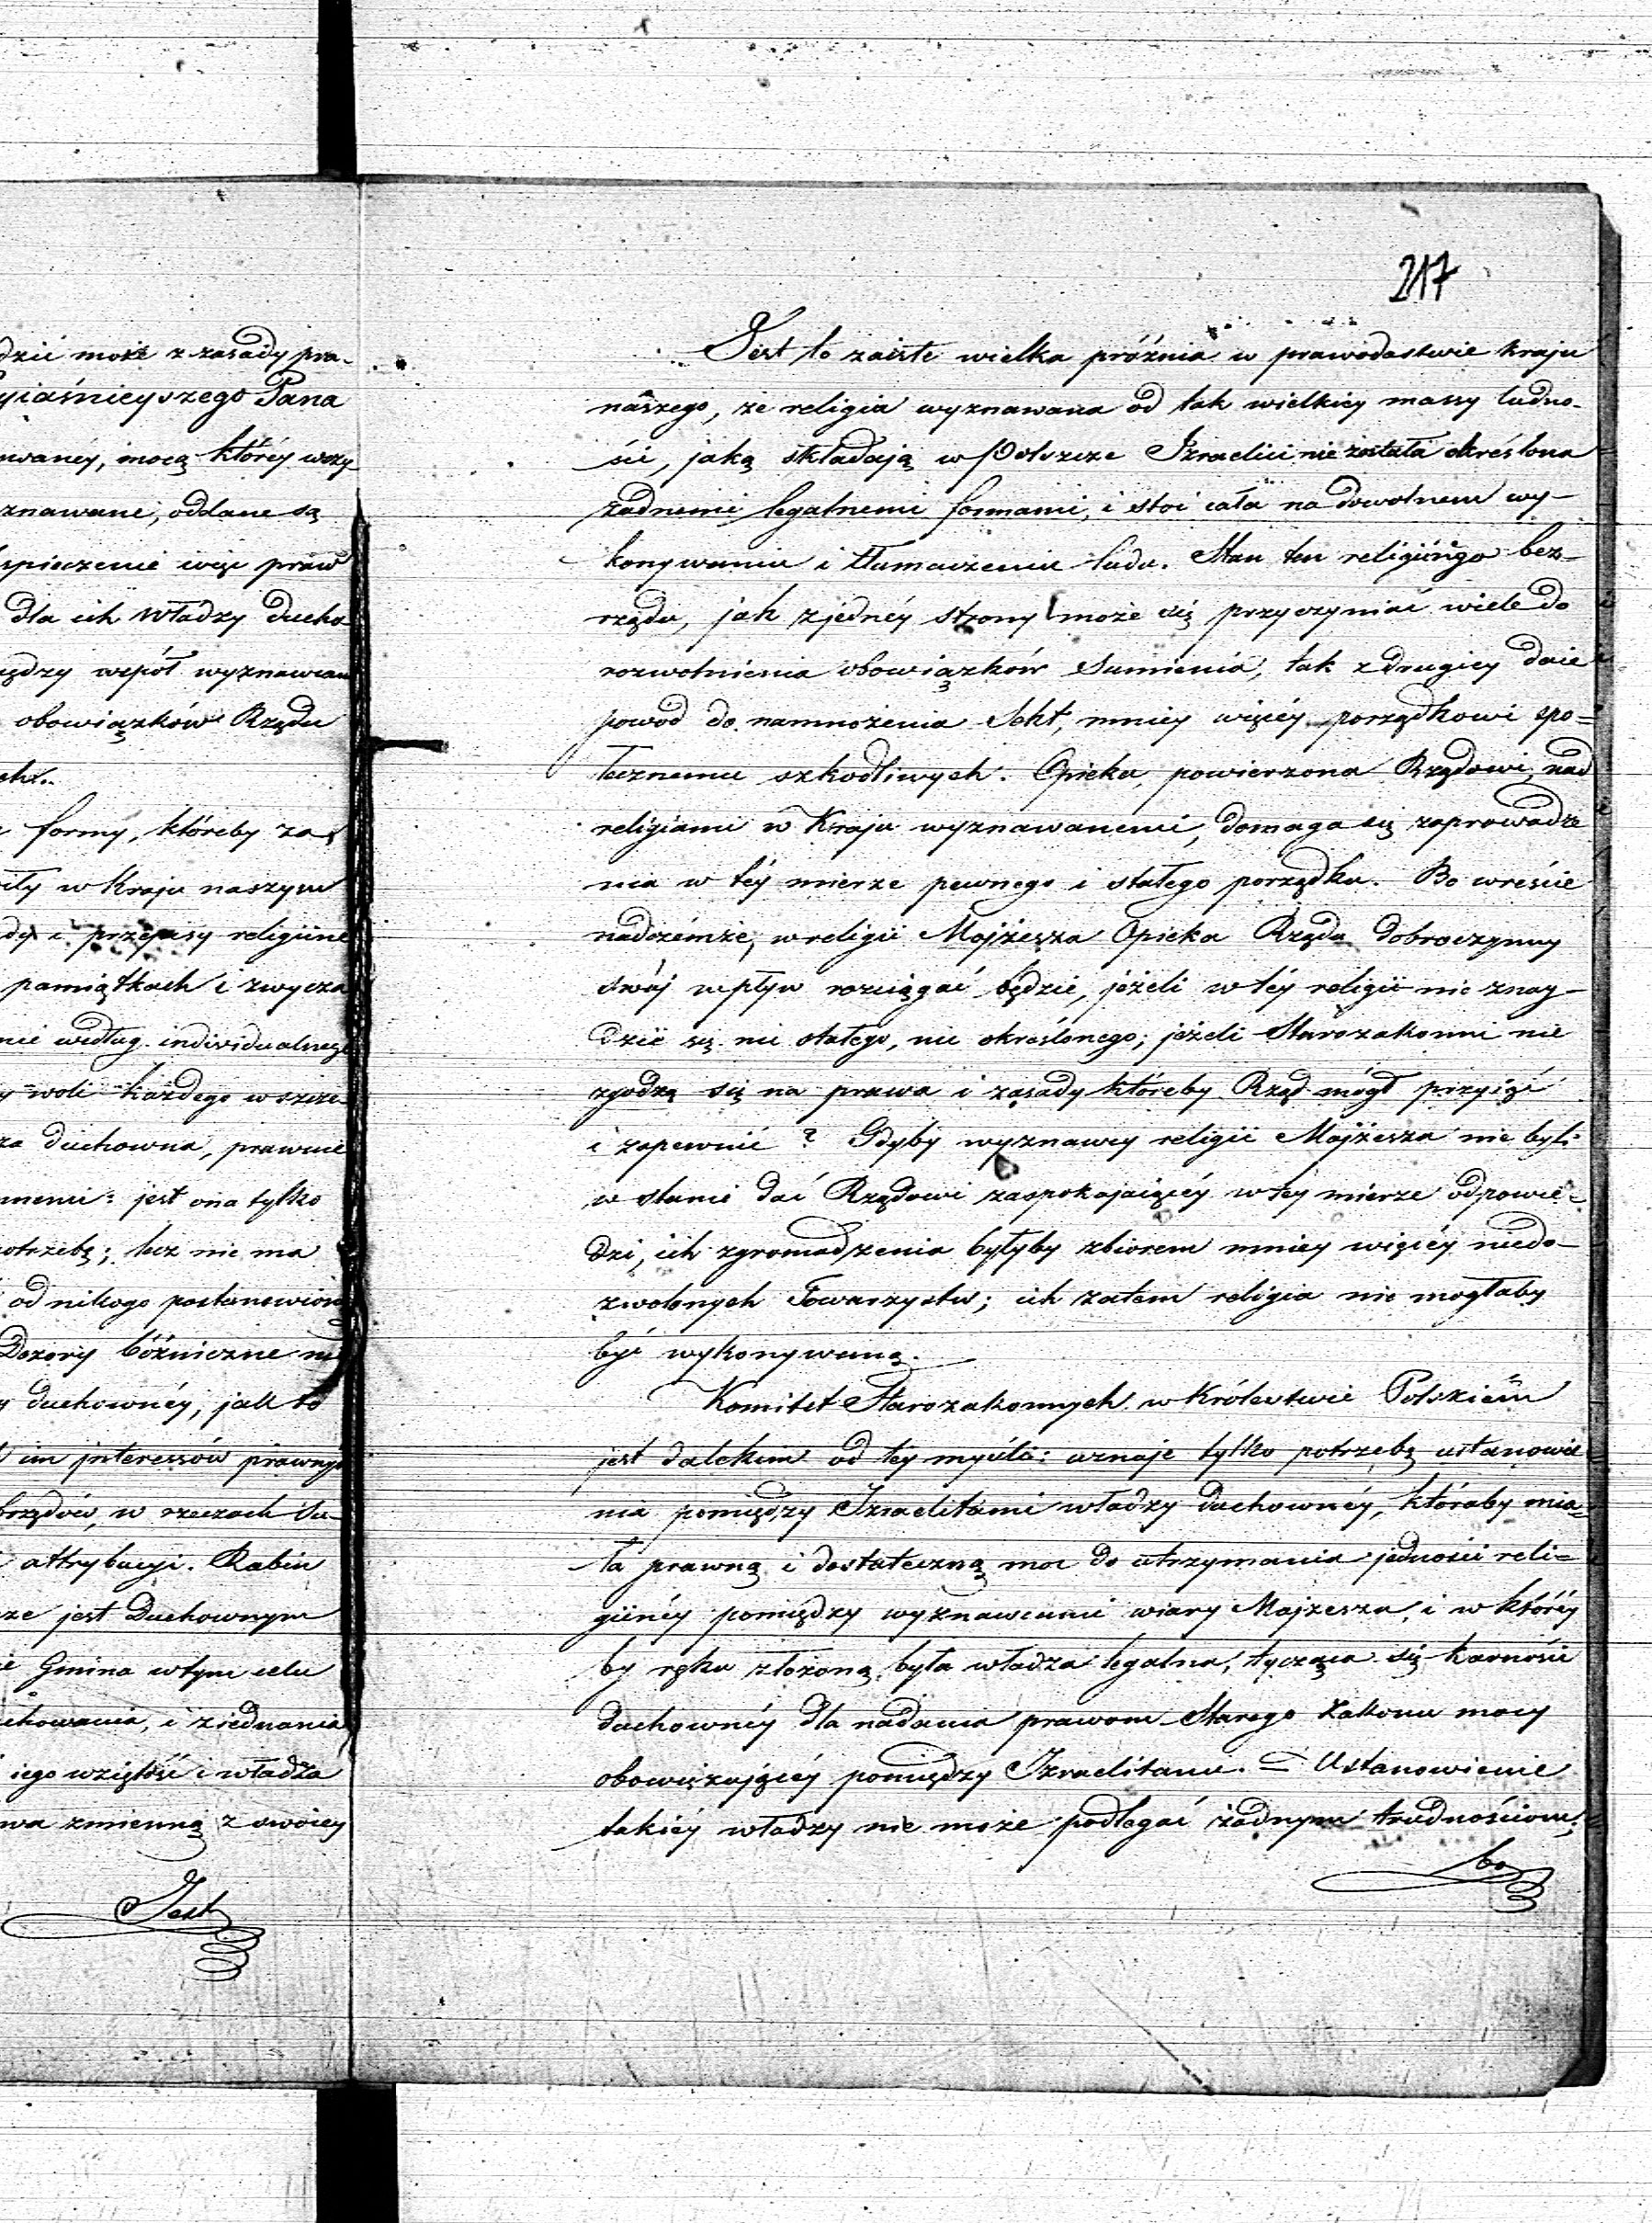 dzić może z zasady pra-
yiaśnieyszego Pana
waney, mocą któréy wszy-
znawane, oddane są
spieczenie więc praw
dla ich władzy ducho-
iędzy wspól wyznawcam
obowiązków Rządu
ch.
formy, któreby za-
iły w Kraju naszym
dy i przepisy religiine
pamiątkach i zwycza
nie według individualnego
y woli każdego w szcze-
za duchowna, prawnie
meni: jest ona tylko
otrzebę; lecz nie ma
od nikogo postanowion
Dozory bóżnicze nie
y duchownéy, jak to
im interessów prawnych
brzędów, w rzeczach su-
attrybucyi. Rabin
ze jest Duchownym
ie Gmina w tym celu
chowania, i ziednania
iego wziętość i władza
wa zmienną z swoiey
Jest
217
Jest to zaiste wielka próżnia w prawodastwie kraju
naszego, że religia wyznawana od tak wielkiey massy ludno-
ści, jaką składają w Polszcze Izraelici nie została określona
żadnemi legalnemi formami, i stoi cała na dowolnem wy-
konywaniu i tłumaczeniu ludu. Stan ten religiinego bez-
rządu, jak z jednéy strony może się przyczyniać wiele do
rozwolnienia obowiązków Sumienia, tak z drugiey daie
powod do namnożenia Sekt, mniey więcéy porządkowi spo=
łecznemu szkodliwych. Opieka, powierzona Rządowi, nad
religiami w Kraju wyznawanemi, domaga się zaprowadze
nia w téy mierze pewnego i stałego porządku. Bo wreście
nadczémże, w religii Mojżesza Opieka Rządu dobroczynny
swój wpływ rozciągać będzie, jeżeli w téy religii nie znay-
dzie się nic stałego, nic określonego; jeżeli Starozakonni nie
zgodzą się na prawa i zasady któreby Rząd mógł przyiąć
i zapewnić? Gdyby wyznawcy religii Mojżesza nie byli
w stanie dać Rządowi zaspokajaiącéy w tey mierze odpowie-
dzi, ich zgromadzenia byłyby zbiorem mniey więcéy niedo-
zwolonych Towarzystw; ich zatem religia nie mogłaby
być wykonywaną.
Komitet Starozakonnych w Królestwie Polskiém
jest dalekim od tey myśli: uznaje tylko potrzebę ustanowie
nia pomiędzy Izraelitami władzy duchownéy, któraby mia=
ła prawną i dostateczną moc do utrzymania jedności reli=
giinéy pomiędzy wyznawcami wiary Mojzesza, i w któréy
by ręku złożoną była władza legalna, tycząca się karności
duchownéy dla nadania prawom Starego Zakonu mocy
obowiązującéy pomiędzy Izraelitami. = Ustanowienie
takiéy władzy nie może podlegać żadnym trudnościom;
bo